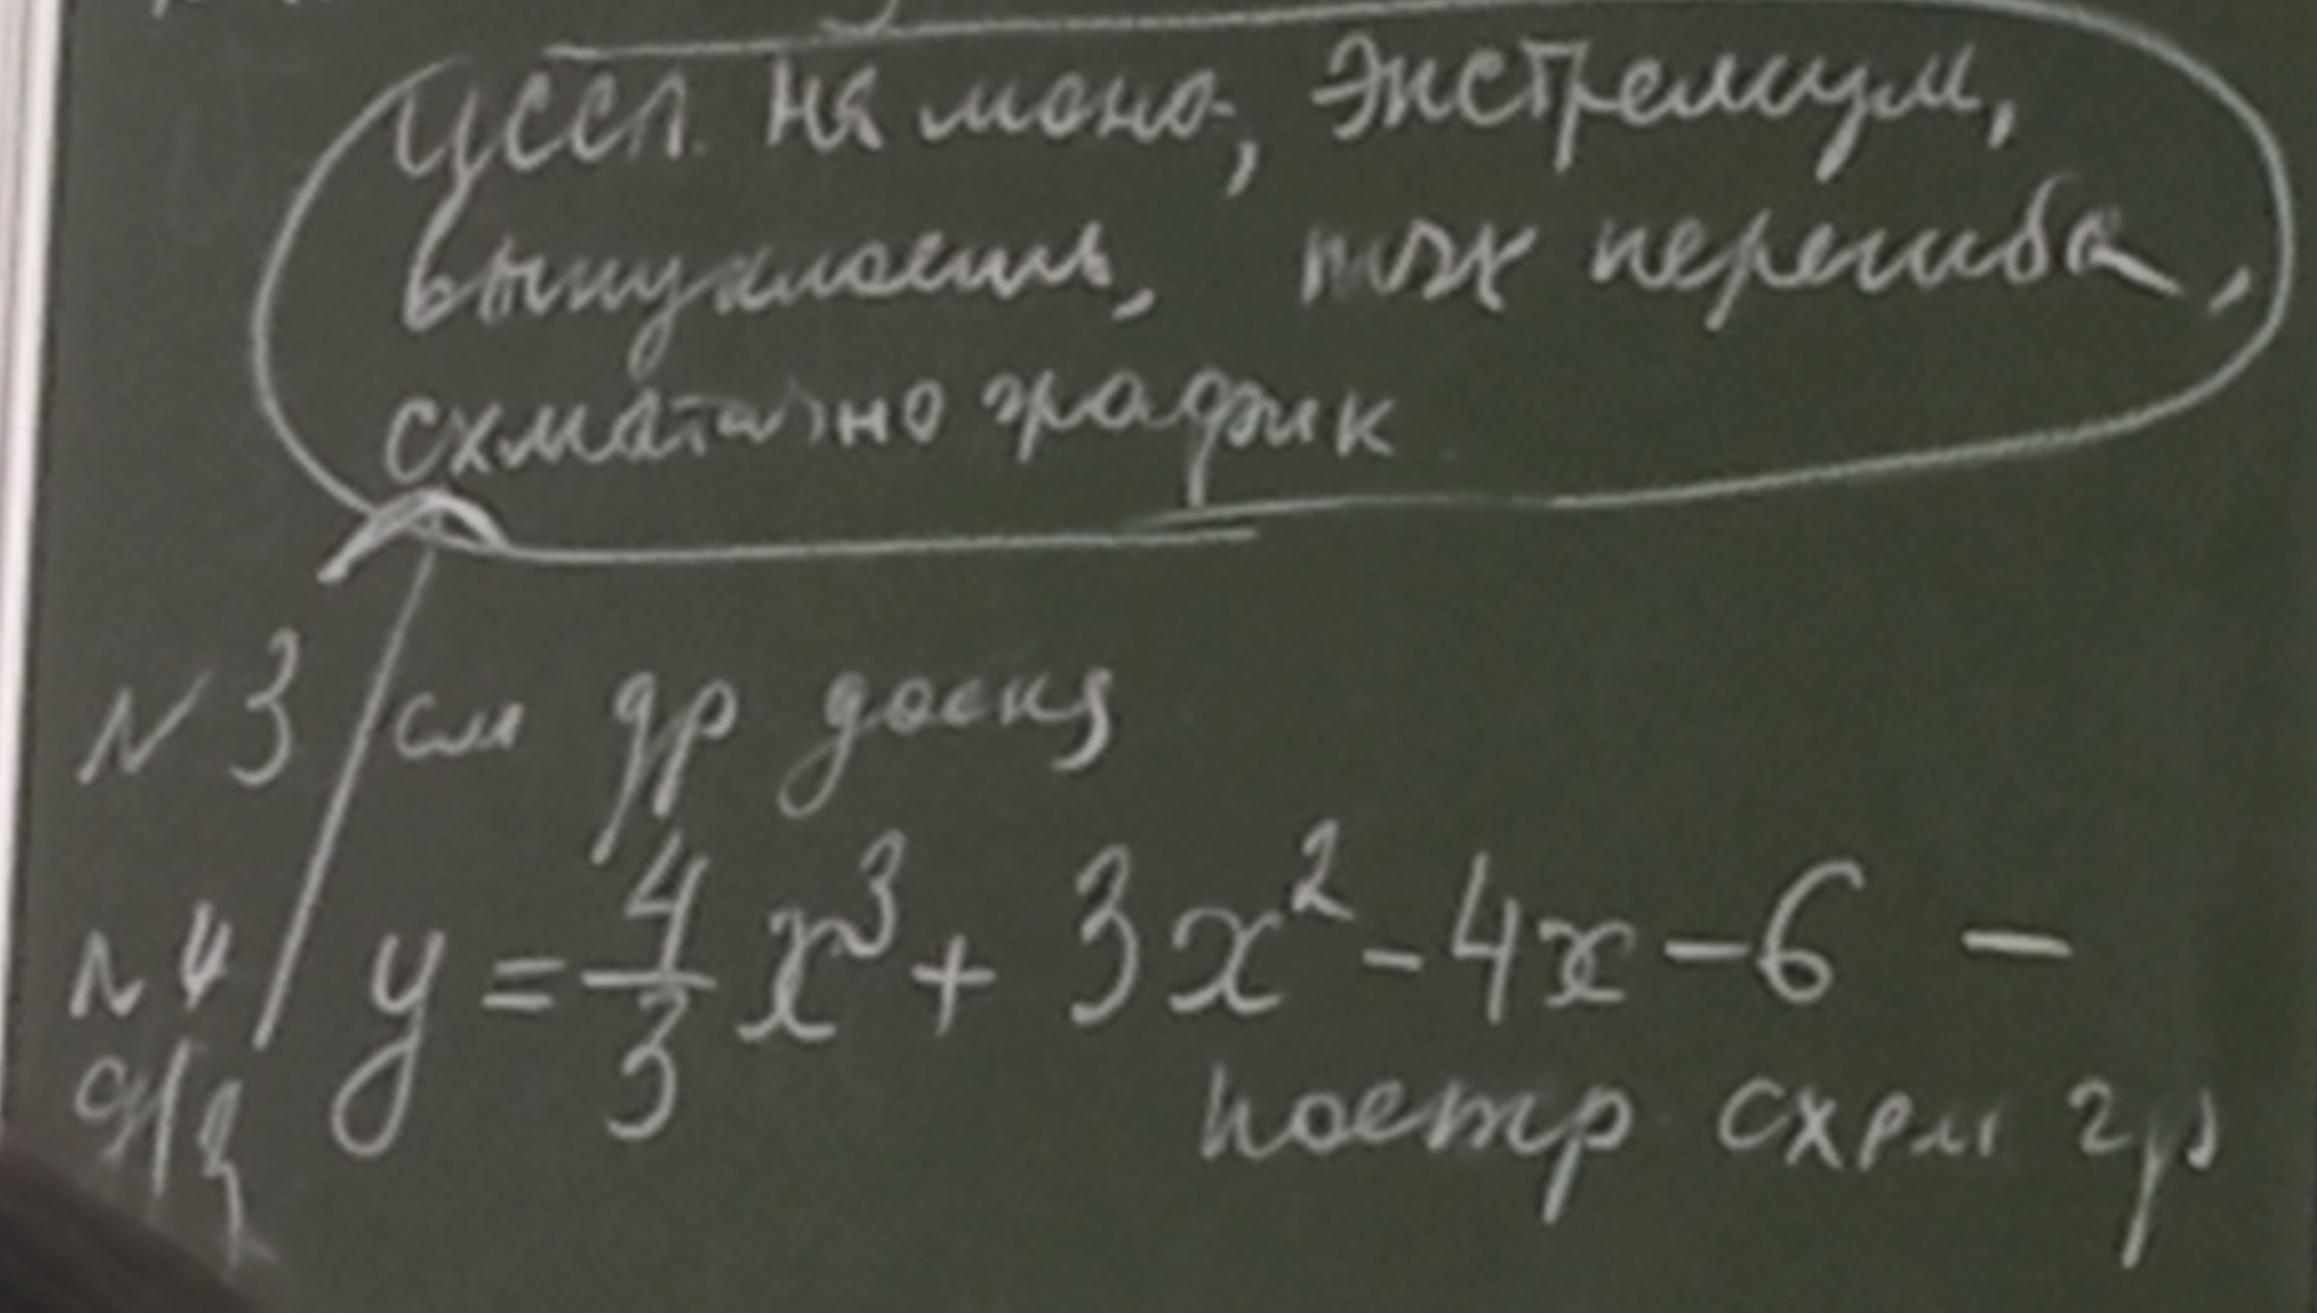 иссл. на моно-, экстремум,
выпуклость, точк перегиба,
схматично график
N 3 см др доску
N 4 y = \frac{4}{3}x^3 + 3x^2 - 4x - 6 -
д/з постр схем гр